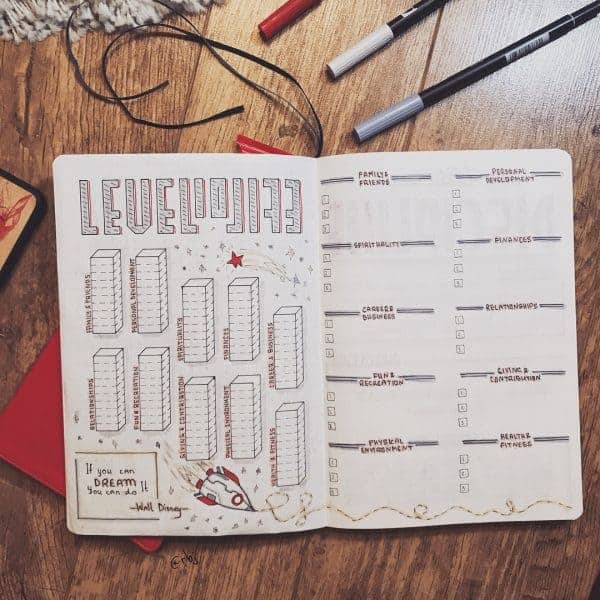 LEVEL 10 LIFE
FAMILY & FRIENDS
PERSONAL DEVELOPMENT
SPIRITUALITY
FINANCES
CAREER & BUSINESS
RELATIONSHIPS
FUN & RECREATION
GIVING & CONTRIBUTION
PHYSICAL ENVIRONMENT
HEALTH & FITNESS
If you can
DREAM
You can do It
-Walt Disney-
FAMILY &
FRIENDS
PERSONAL
DEVELOPMENT
SPIRITUALITY
FINANCES
CAREER &
BUSINESS
RELATIONSHIPS
FUN &
RECREATION
GIVING &
CONTRIBUTION
PHYSICAL
ENVIRONMENT
HEALTH &
FITNESS